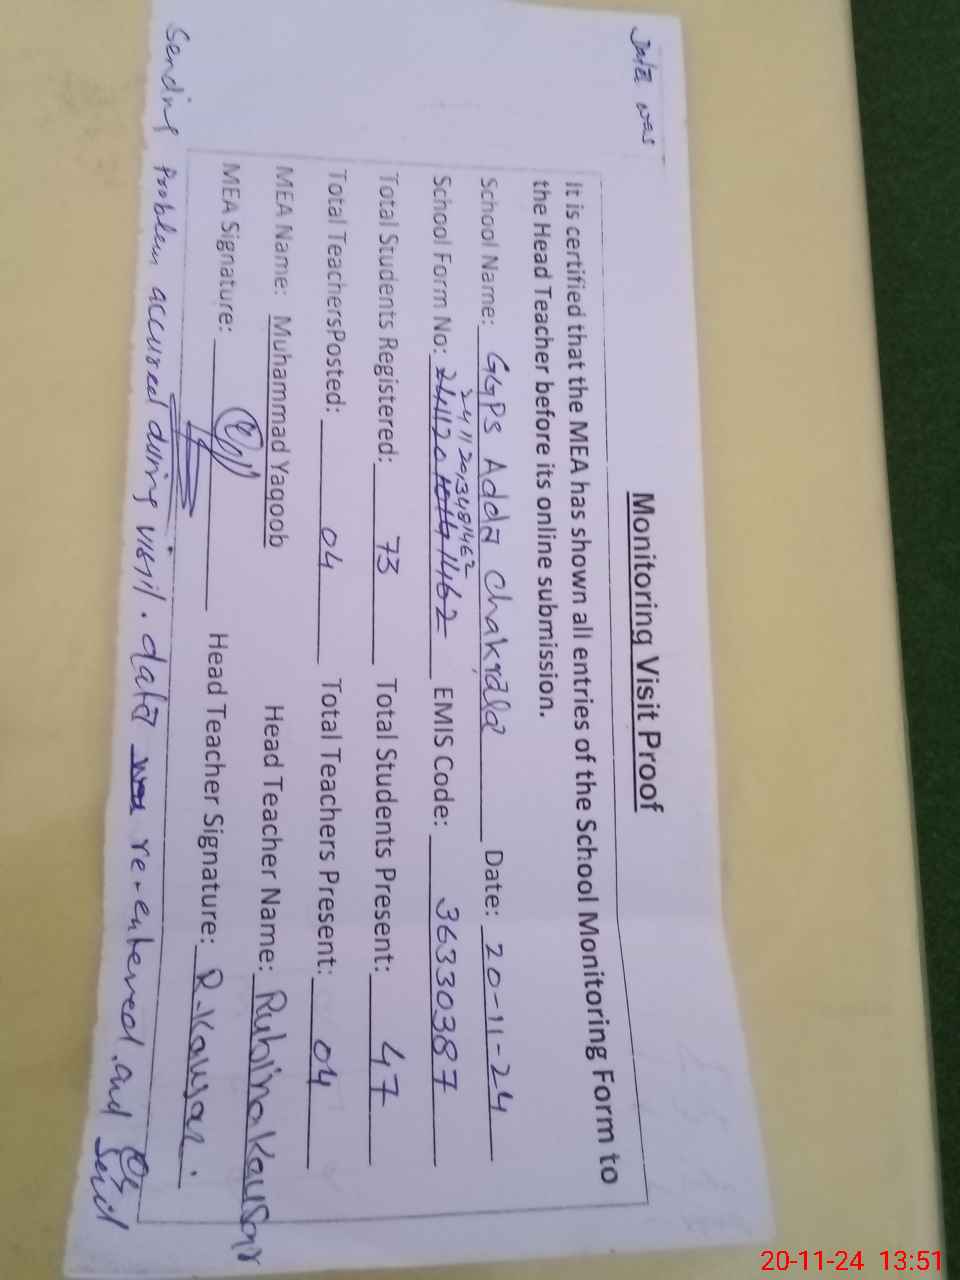 Data was
Monitoring Visit Proof
It is certified that the MEA has shown all entries of the School Monitoring Form to
the Head Teacher before its online submission.
School Name: GGPS Adda Chakrala Date: 20-11-24
24112013481462
School Form No: 1462 EMIS Code: 36330387
Total Students Registered: 73 Total Students Present: 47
Total TeachersPosted: 04 Total Teachers Present: 04
MEA Name: Muhammad Yaqoob Head Teacher Name: Rubina Kausar
MEA Signature: Head Teacher Signature: R-Kausar.
Sending Problem accured during visit. data was re-entered. and
20-11-24 13:51